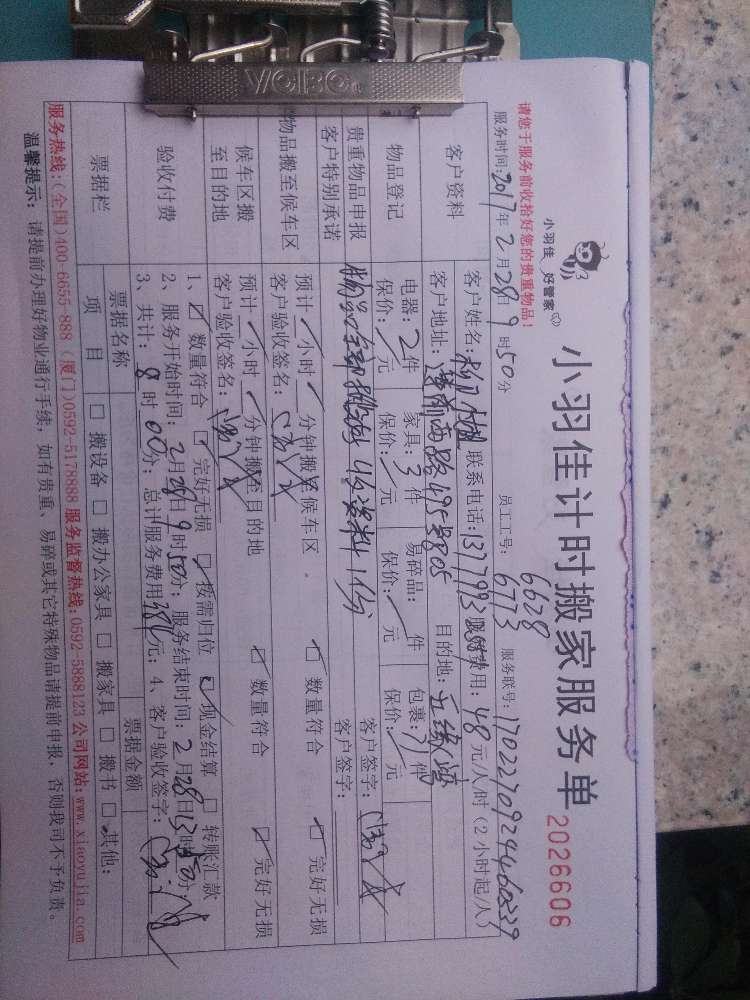 VOBO
小羽佳 好管家
小羽佳计时搬家服务单 2026606
员工工号: 6628 6773 服务联号: 1702270924460339
请您于服务前收拾好您的贵重物品!
服务时间: 2017年2月28日9时50分
客户资料
客户姓名: 联系电话: 服务费用: 48元/人/时(2小时起/人)
客户地址: 莲前西路495号805 目的地: 五缘湾
物品登记
电器: 2件 家具: 3件 易碎品: 件 包裹: 11件
保价: 元 保价: 元 保价: 元 保价: 元
贵重物品申报 客户签字:
客户特别承诺 客户签字:
物品搬至候车区
预计 小时 分钟搬至候车区 数量符合 完好无损
客户验收签名:
候车区搬至目的地
预计 小时 分钟搬至目的地 数量符合 完好无损
客户验收签名:
验收付费
1、☑ 数量符合 完好无损 按需归位 现金结算 □ 转账汇款
2、服务开始时间: 2月28日9时50分; 服务结束时间: 2月28日13时50分
3、共计: 8时00分; 总计服务费用384元; 4、客户验收签字:
票据栏
票据名称 票据金额
项目 □ 搬设备 □ 搬办公家具 □ 搬家具 □ 搬书 □ 其他:
服务热线:(全国)400-6655-888 (厦门)0592-5178888 服务监督热线:0592-5888123 公司网站:www.xiaoyujia.com
温馨提示: 请提前办理好物业通行手续, 如有贵重、易碎或其它特殊物品请提前申报, 否则我司不予负责。